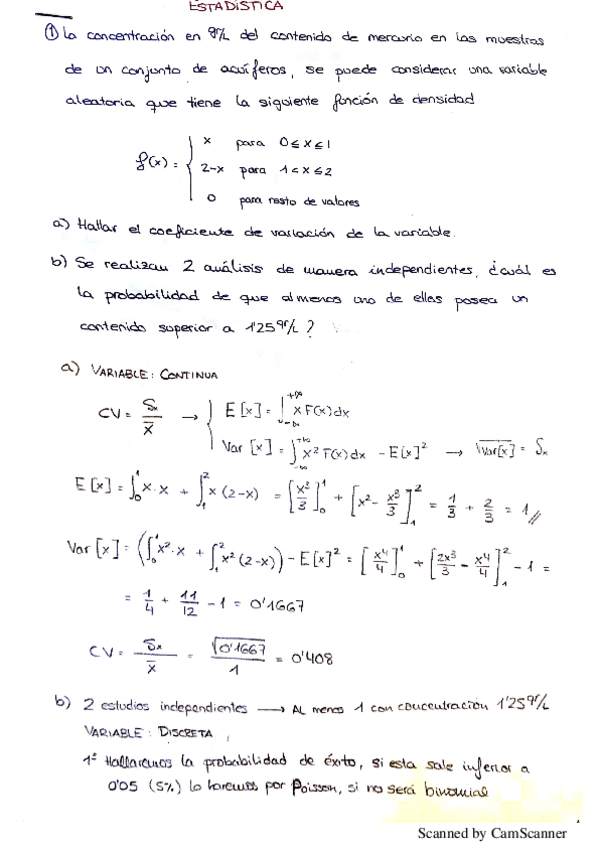 ESTADÍSTICA
① La concentración en gr/L del contenido de mercurio en las muestras
de un conjunto de acuíferos, se puede considerar una variable
aleatoria que tiene la siguiente función de densidad
f(x) = { x para 0 ≤ x ≤ 1
2-x para 1 < x ≤ 2
0 para resto de valores
a) Hallar el coeficiente de variación de la variable.
b) Se realizan 2 análisis de manera independientes, ¿cuál es
la probabilidad de que al menos uno de ellas posea un
contenido superior a 1'25 gr/L?
a) VARIABLE: CONTINUA
CV = Sx / x̄ → { E[x] = ∫_{-∞}^{+∞} x F(x) dx
Var [x] = ∫_{-∞}^{+∞} x² F(x) dx - E[x]² → √Var[x] = Sx
E[x] = ∫₀¹ x·x + ∫₁² x(2-x) = [x³/3]₀¹ + [x² - x³/3]₁² = 1/3 + 2/3 = 1 //
Var [x] = (∫₀¹ x²·x + ∫₁² x²(2-x)) - E[x]² = [x⁴/4]₀¹ + [2x³/3 - x⁴/4]₁² - 1 =
= 1/4 + 11/12 - 1 = 0'1667
CV = Sx / x̄ = √0'1667 / 1 = 0'408
b) 2 estudios independientes → AL menos 1 con concentración 1'25 gr/L
VARIABLE: DISCRETA
1º Hallaremos la probabilidad de éxito, si esta sale inferior a
0'05 (5%) lo haremos por Poisson, si no será binomial
Scanned by CamScanner